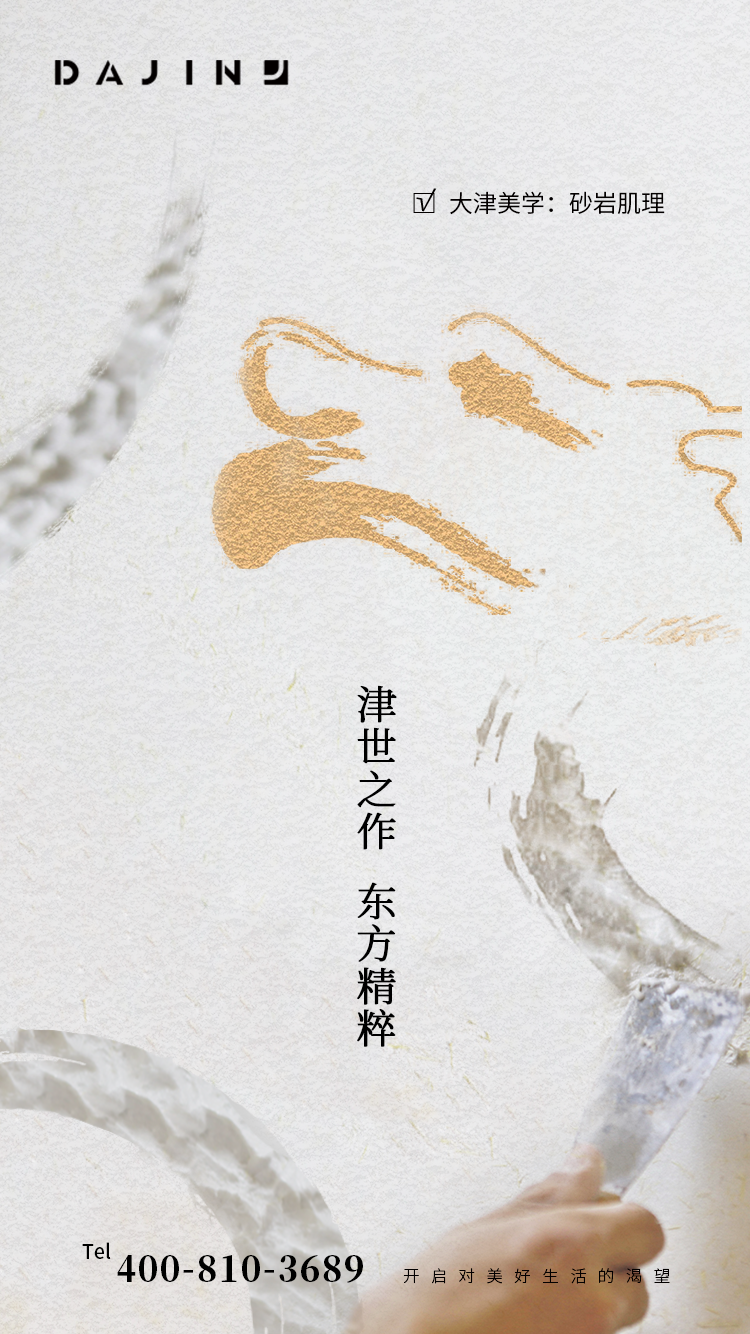 DAJIN
☑ 大津美学：砂岩肌理
津世之作 东方精粹
Tel 400-810-3689
开启对美好生活的渴望